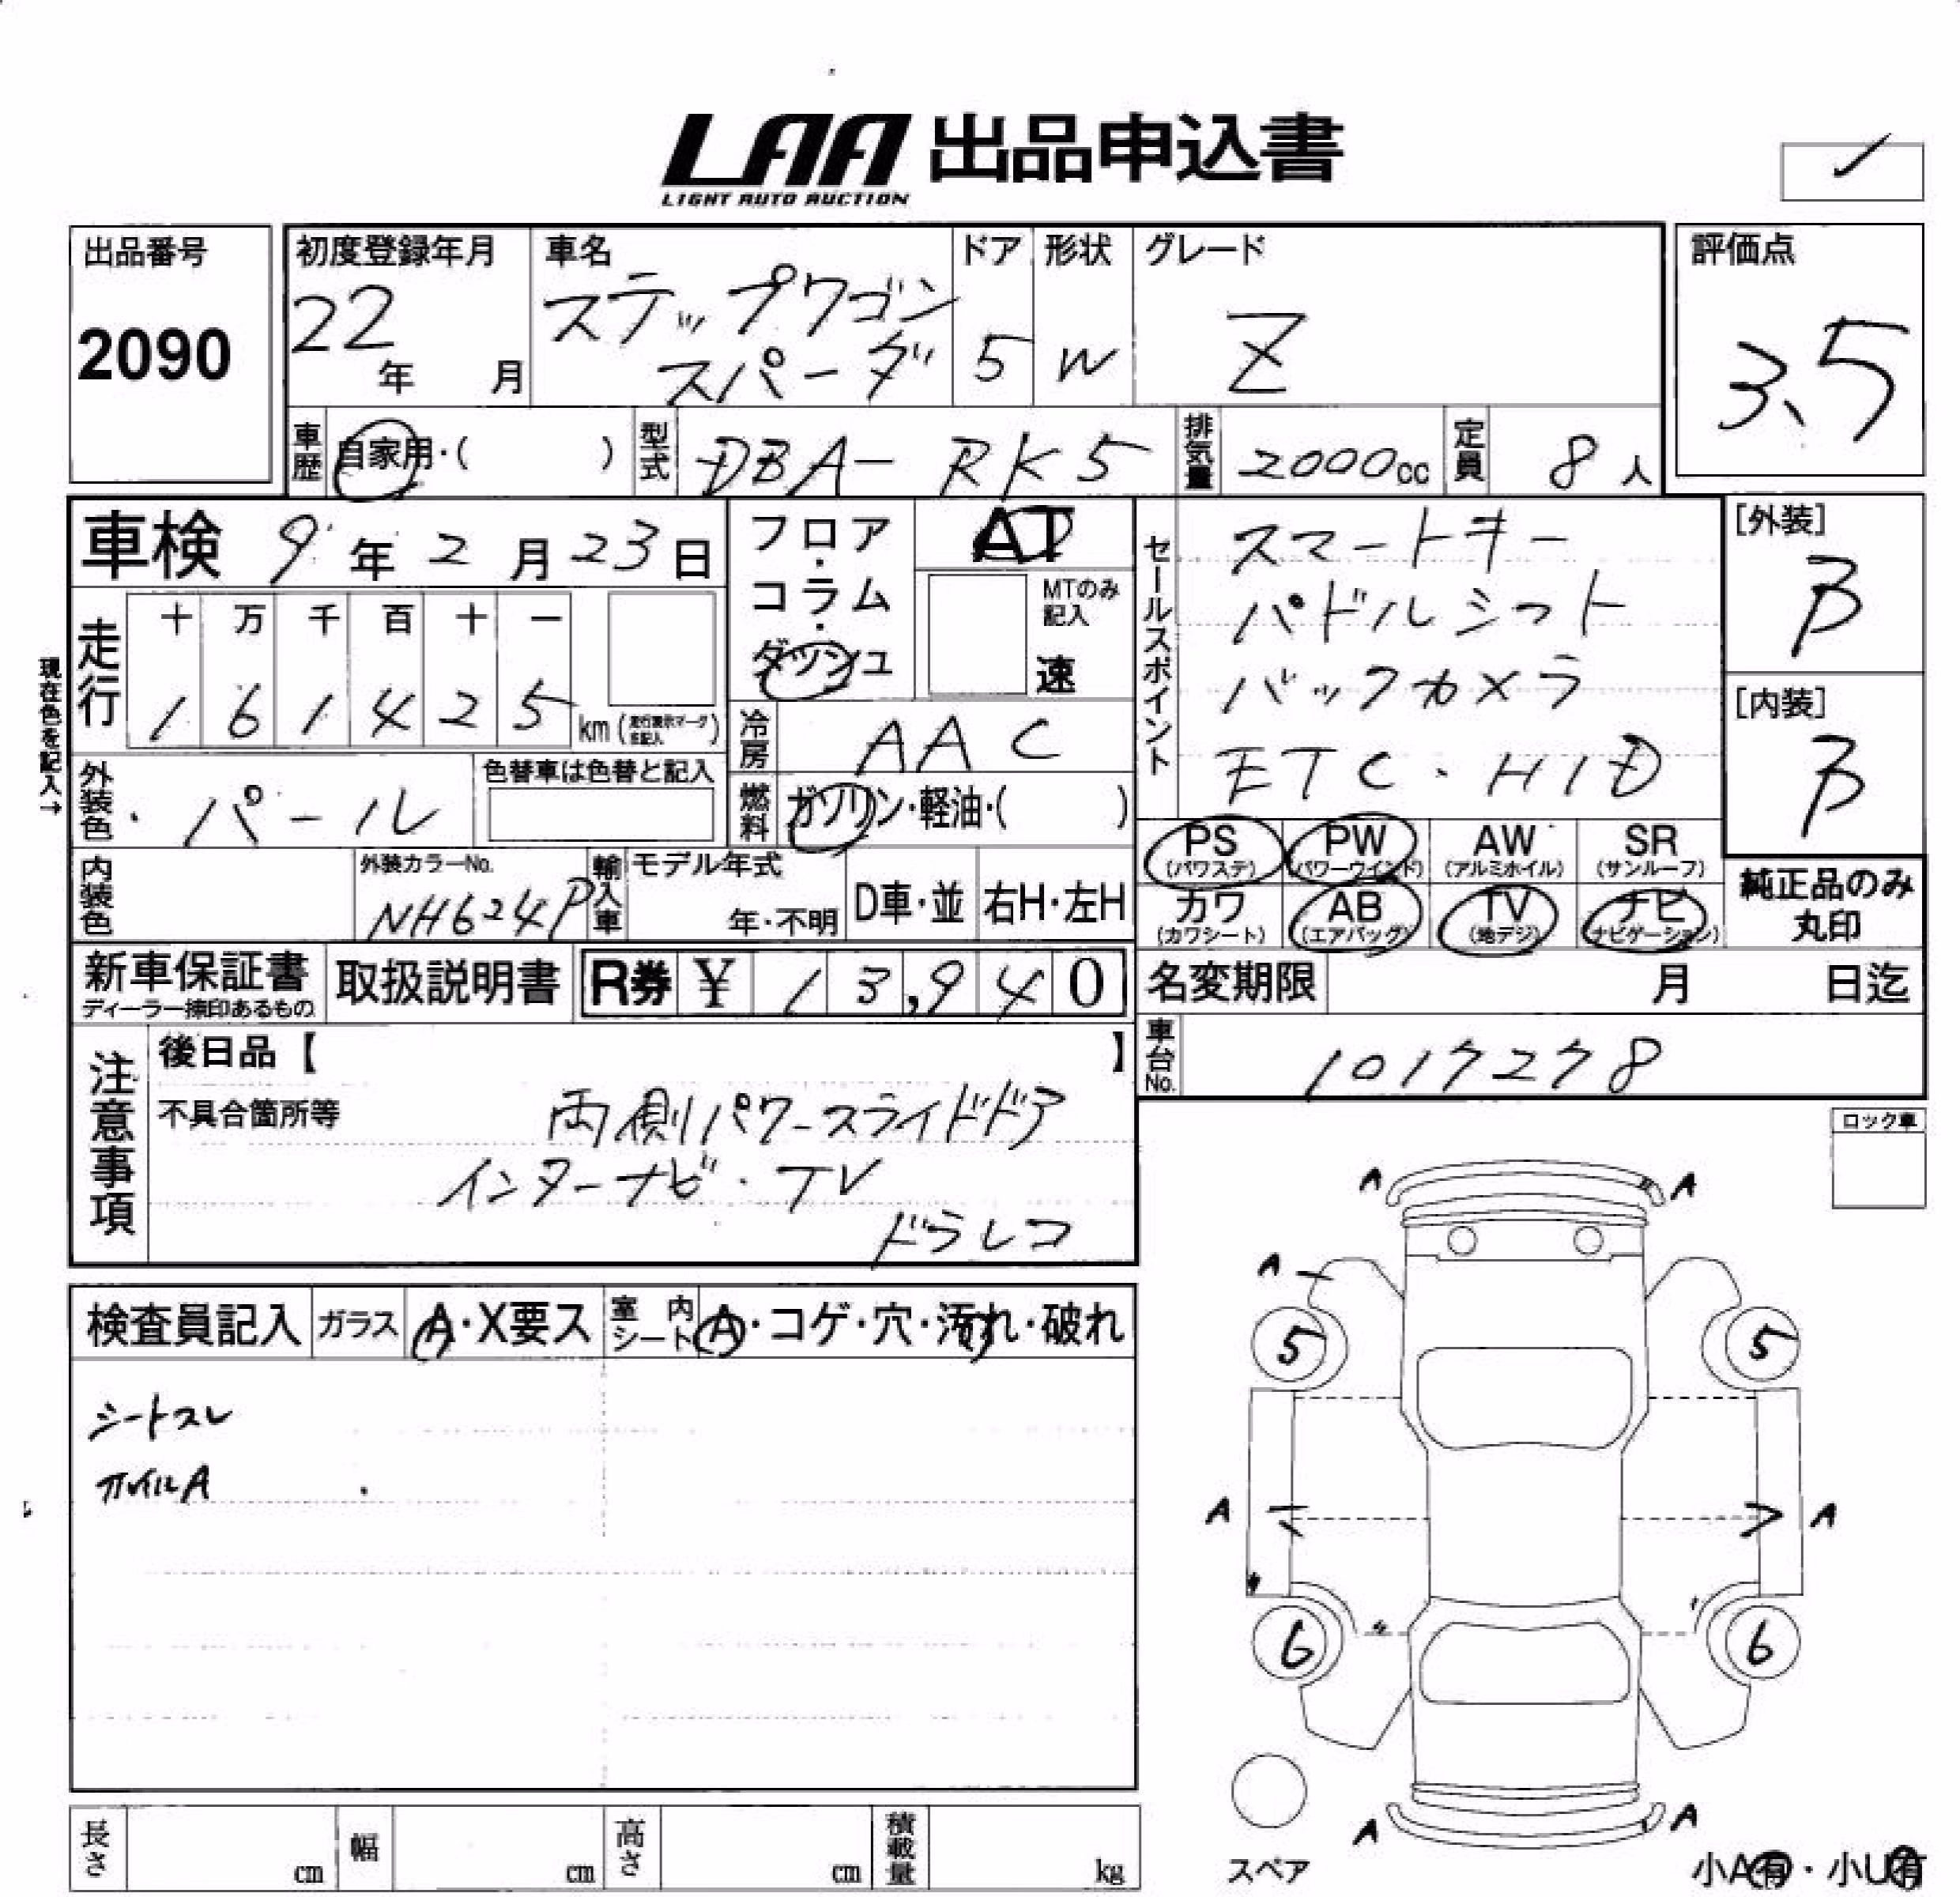 LAA 出品申込書
LIGHT AUTO AUCTION
出品番号
2090
初度登録年月
22年 月
車名
ステップワゴン
スパーダ
ドア
5
形状
W
グレード
Z
評価点
3.5
車歴 自家用・( )
型式 DBA-RK5
排気量 2000cc
定員 8人
車検 9年2月23日
現在色を記入→
走行
十 万 千 百 十 一
1 6 1 4 2 5 km
フロア・コラム・ダッシュ
AT
MTのみ記入
速
冷房 AAC
燃料 ガソリン・軽油・( )
セールスポイント
スマートキー
パドルシフト
バックカメラ
ETC・HID
[外装]
B
[内装]
B
外装色 パール
色替車は色替と記入
内装色
外装カラーNo.
NH624P
輸入車
モデル年式
年・不明
D車・並
右H・左H
PS (パワステ)
PW (パワーウインド)
AW (アルミホイル)
SR (サンルーフ)
カワ (カワシート)
AB (エアバッグ)
TV (地デジ)
ナビ (ナビゲーション)
純正品のみ丸印
新車保証書
ディーラー捺印あるもの
取扱説明書
R券 ¥ 13,940
名変期限 月 日迄
車台No. 1017278
注意事項
後日品【 】
不具合箇所等
両側パワースライドドア
インターナビ・TV
ドラレコ
ロック車
検査員記入
ガラス A・X要ス
室内シート A・コゲ・穴・汚れ・破れ
シートスレ
ホイルA
A A
A
5 5
A A
6 6
A A
スペア
小A有・小U有
長さ cm
幅 cm
高さ cm
積載量 kg